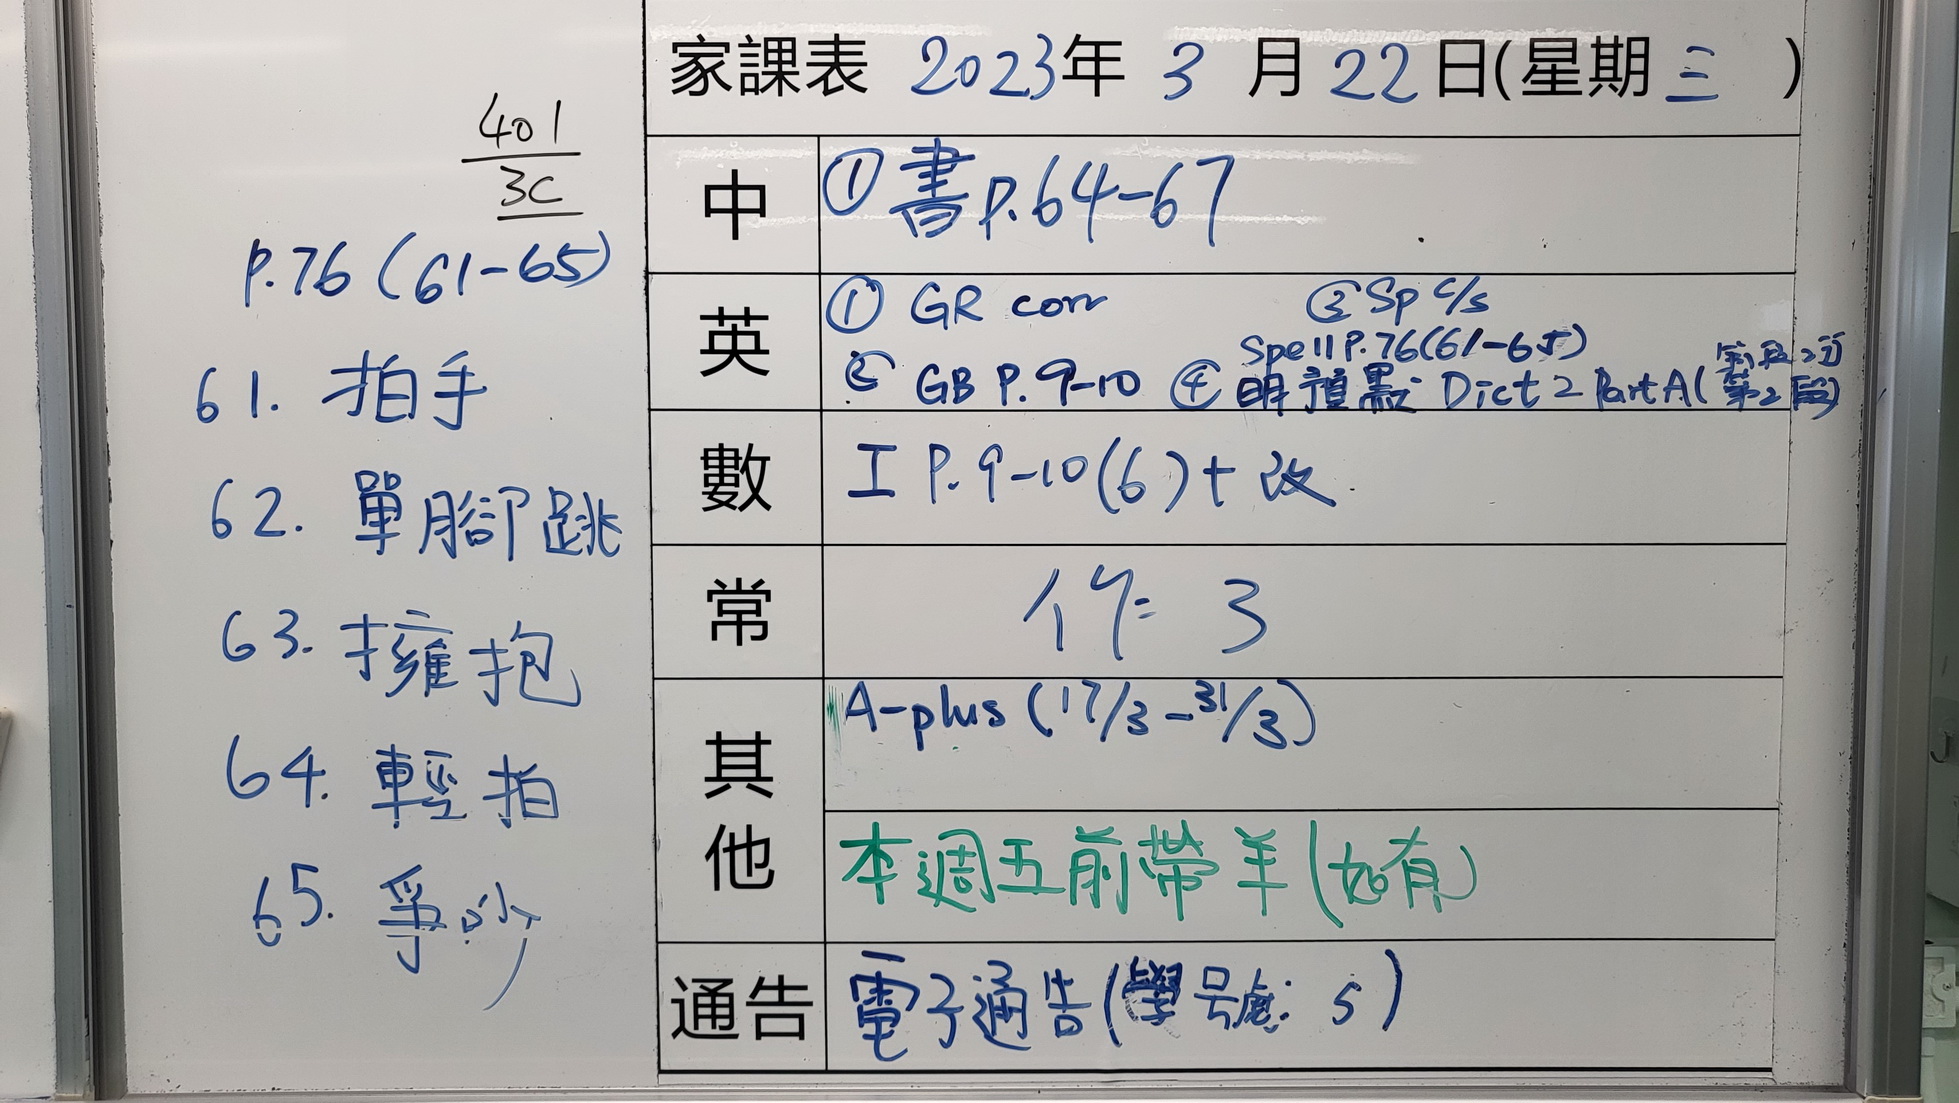 401
3C
P.76 (61-65)
61. 拍手
62. 單腳跳
63. 擁抱
64. 輕拍
65. 爭吵
家課表 2023年 3 月 22 日(星期 三 )
中 ① 書 P.64-67
英 ① GR corr ③ Sp c/s
② GB P. 9-10 ④ 明預默: Dict 2 Part A (第2段)
Spell P.76(61-65)
數 工 P.9-10(6)+改
常 作 3
其他 A-plus (17/3-31/3)
本週五前帶羊(如有)
通告 電子通告(學号處: 5)